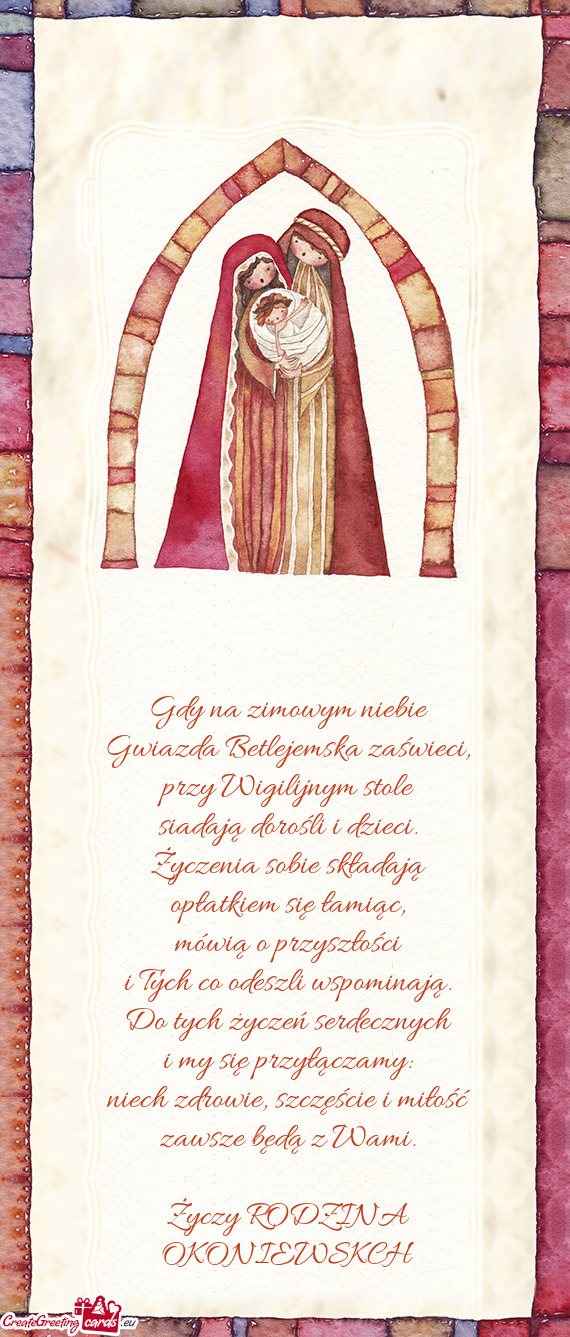 Gdy na zimowym niebie
Gwiazda Betlejemska zaświeci,
przy Wigilijnym stole
siadają dorośli i dzieci.
Życzenia sobie składają
opłatkiem się łamiąc,
mówią o przyszłości
i Tych co odeszli wspominają.
Do tych życzeń serdecznych
i my się przyłączamy:
niech zdrowie, szczęście i miłość
zawsze będą z Wami.
Życzy RODZINA
OKONIEWSKCH
CreateGreeting cards .eu